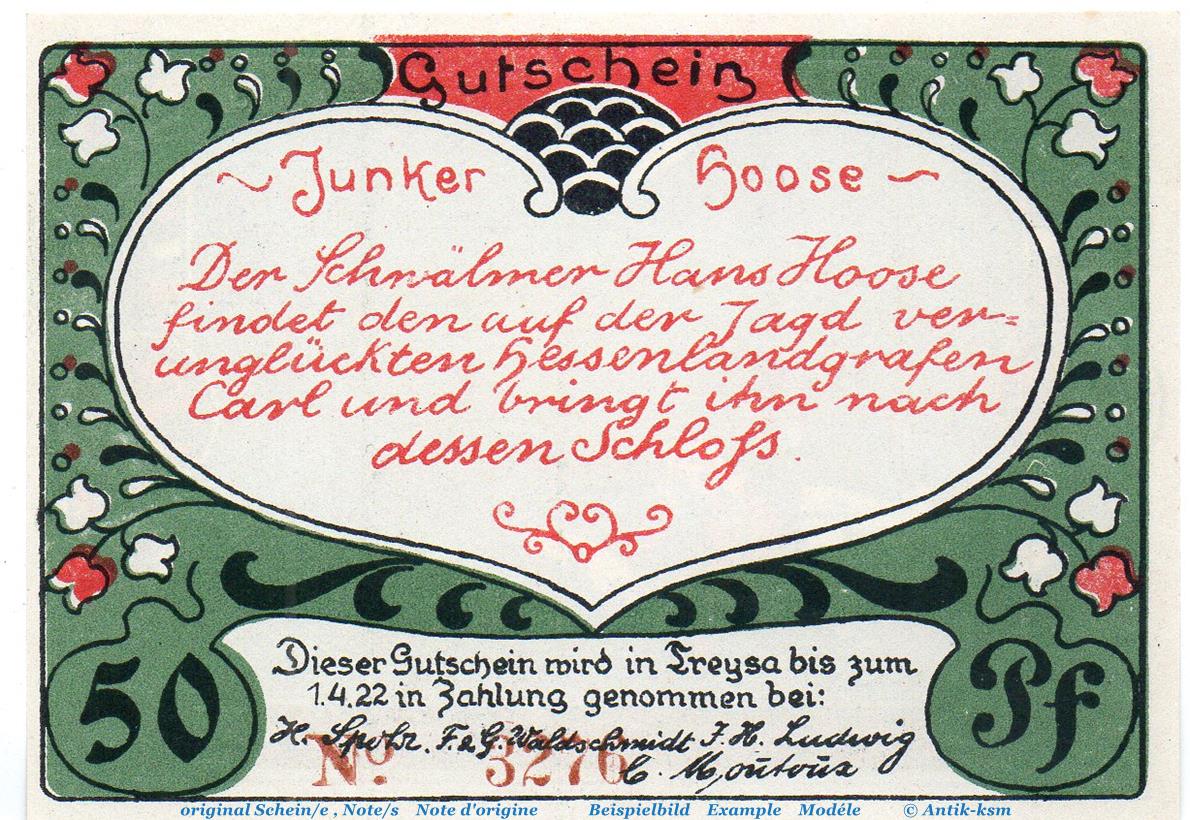 Gutschein
~ Junker Hoose ~
Der Schwälmer Hans Hoose
findet den auf der Jagd ver=
unglückten Hessenlandgrafen
Carl und bringt ihn nach
dessen Schloſs.
50
Dieser Gutschein wird in Treysa bis zum
1.4.22 in Zahlung genommen bei:
H. Spohr. F. & G. Waldschmidt J. H. Ludwig
No 3276 C. Moutoux
Pf
original Schein/e , Note/s Note d'origine Beispielbild Example Modéle © Antik-ksm